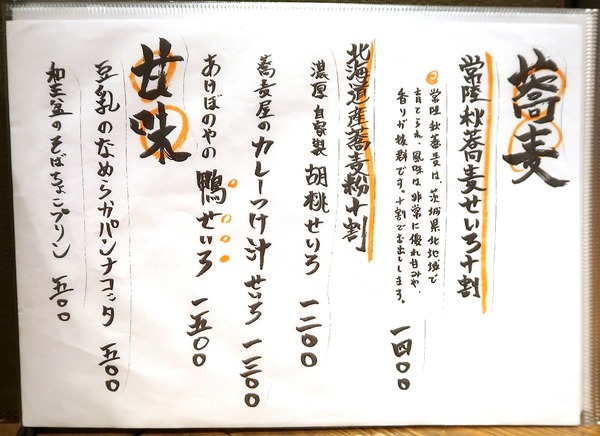 蕎麦
常陸秋蕎麦せいろ十割
常陸秋蕎麦は、茨城県北地域で
育てられ、風味は非常に優れ甘みや、
香りが抜群です。十割でお出しします。
一四〇〇
北海道産蕎麦粉十割
濃厚自家製胡桃せいろ 一二〇〇
蕎麦屋のカレーつけ汁せいろ 一三〇〇
あけぼのやの鴨せいろ 一五〇〇
甘味
豆乳のなめらかパンナコッタ 五〇〇
和三盆のそばちょこプリン 五〇〇